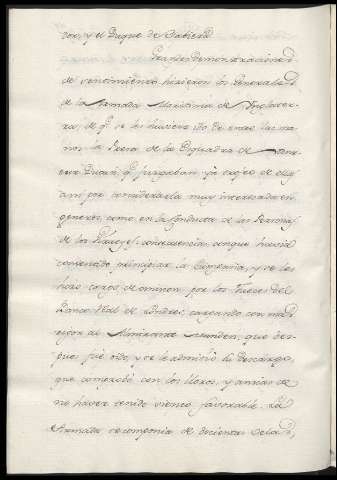 dor, y el Duque de
Grandes demonstraciones
de sentimiento hicieron los Generales
de la Armada Maritima de Inglater-
ra, de q.e se les huviese ido de entre las ma-
nos la Presa de la Esquadra de
Ducas, q.e juzgaban ya cogido de ellos
asi por considerarla muy interesada en
generos, como en la conducta de las Personas
de los Virreyes; consecuencia con que havia
comenzado principiar la Campaña, y se les
hizo cargo de omision por los Jueces del
Banco Real de Londres; cargando con ma-
yor al Almirante Munden, que des-
pues fué oido, y se le admitió la descarga
que comprobó con los libros, y ansias de
no haver tenido vientos favorable. La
Armada se componia de docientas velas